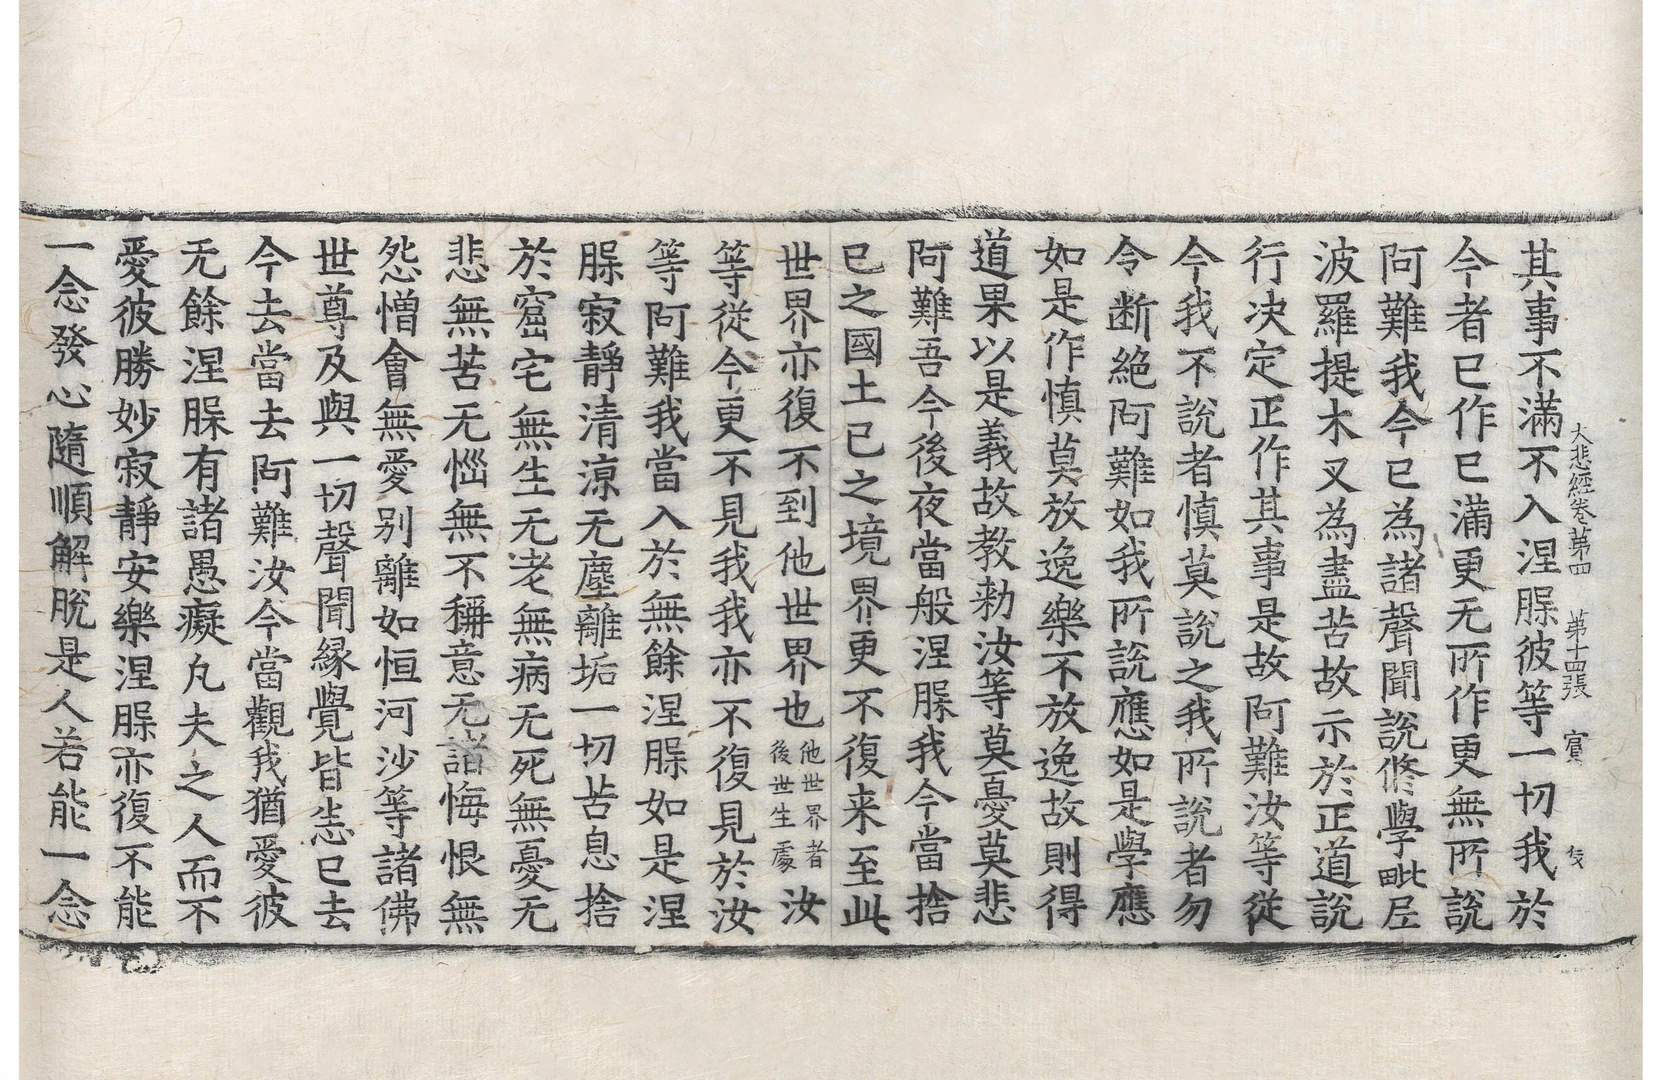 大悲經卷第四　第十四張　賓
其事不滿不入涅槃彼等一切我於
今者已作已滿更无所作更無所說
阿難我今已為諸聲聞說修學毗尼
波羅提木叉為盡苦故示於正道說
行決定正作其事是故阿難汝等從
今我不說者慎莫說之我所說者勿
令断絕阿難如我所說應如是學應
如是作慎莫放逸樂不放逸故則得
道果以是義故教勑汝等莫憂莫悲
阿難吾今後夜當般涅槃我今當捨
已之國土已之境界更不復来至此
世界亦復不到他世界也他世界者後世生處汝
等從今更不見我我亦不復見於汝
等阿難我當入於無餘涅槃如是涅
槃寂靜清涼无塵離垢一切苦息捨
於窟宅無生无老無病无死無憂无
悲無苦无惱無不稱意无諸悔恨無
怨憎會無愛別離如恒河沙等諸佛
世尊及與一切聲聞緣覺皆悉已去
今去當去阿難汝今當觀我猶愛彼
无餘涅槃有諸愚癡凡夫之人而不
愛彼勝妙寂靜安樂涅槃亦復不能
一念發心隨順解脫是人若能一念